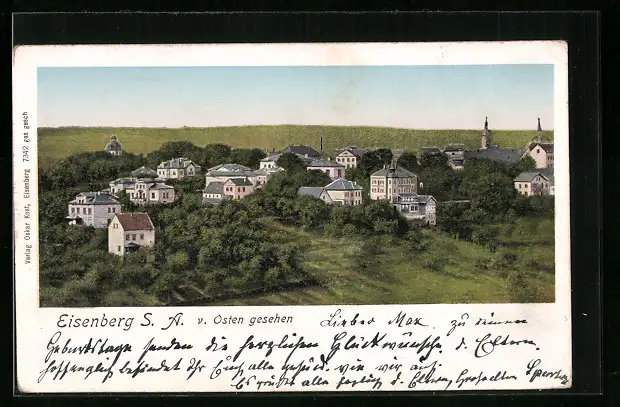 Verlag Oskar Kost, Eisenberg 7342 ges gesch
Eisenberg S. A. v. Osten gesehen
Lieber Max, zu deinem
Geburtstage senden die herzlichen Glückwünsche d. Eltern.
Hoffenglich befindet Ihr Euch alle gesund. wie wir auch.
Es grüßt alle d. Eltern,